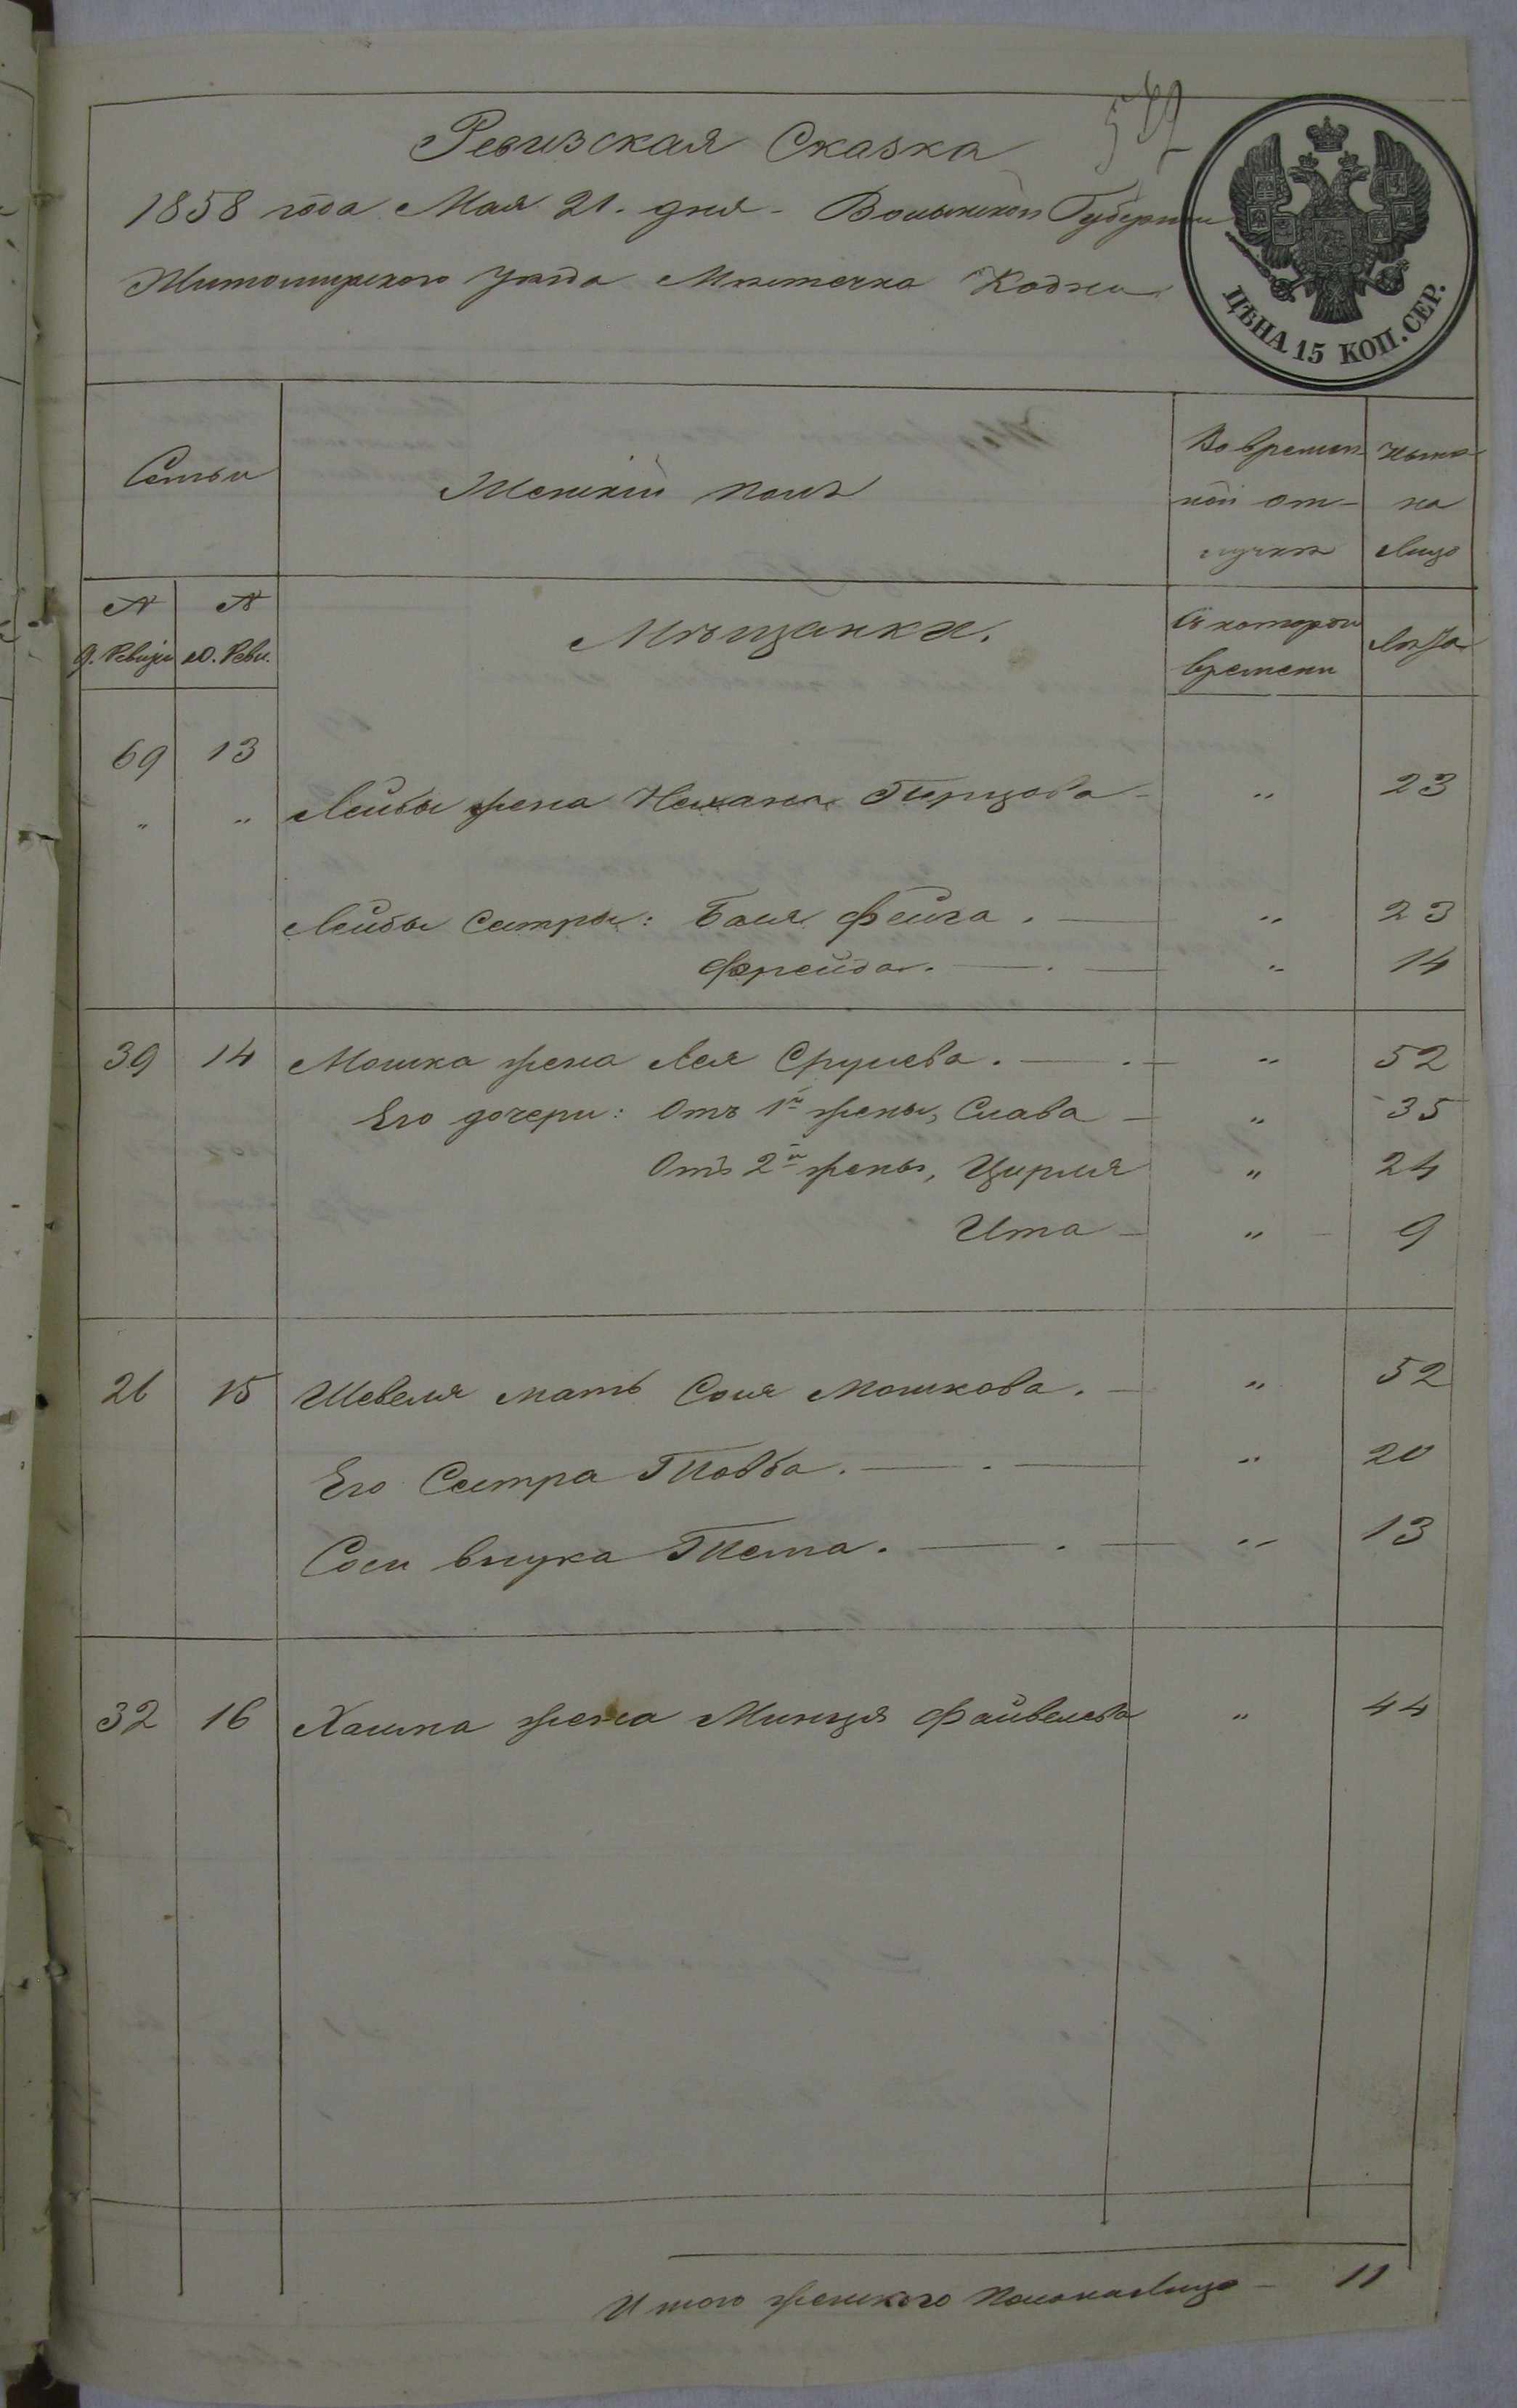 Ревизская Сказка
1858 года Мая 21. дня - Волынской Губернии
Житомирского уѣзда Мѣстечка Кодни
ЦѢНА 15 КОП. СЕР.
Семьи
Женскій полъ
Во времен
ной от-
лучкѣ
Нынѣ
на
лицо
№ 9. Ревизіи
№ 10. Реви.
Мѣщанки.
Съ котораго
времени
Лѣта
69 13
" " Лейбы жена Нехама Герцова - " 23
Лейбы сестры: Бася Фейга. " 23
Фрейда. " 14
39 14 Мошка жена Лея Срулева. " 52
Его дочери: Отъ 1й жены, Слава - " 35
Отъ 2й жены, Цирля " 24
Ита - " 9
26 15 Шевеля мать Сося Мошкова. - " 52
Его Сестра Товба. " 20
Соси внука 13
32 16 Хаима жена Минця Файвелева " 44
Итого женского пола на лицо - 11